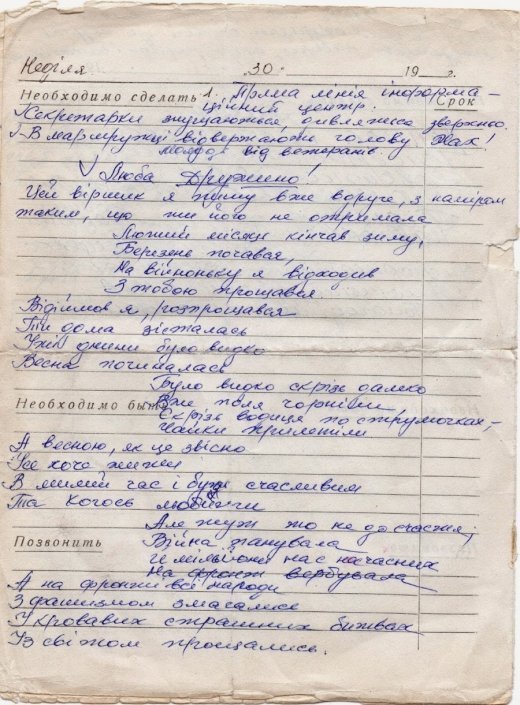 Неділя „30“ 19 г.
Необходимо сделать 1. Пряма лінія інформа-
ційний центр. Срок
Секретарки знущаються, дивляться зверхньо.
В маршрутці відвертають голову Жах!
молодь від ветеранів.
Люба Дружино!
Цей віршик я пишу вже воруче, з наміром
таким, що ти його не отримала
Лютий місяць кінчав зиму,
Березень почавая,
На війноньку я відходив
З тобою прощався.
Відійшов я, розпрощавая
Ти дома зісталась
Ужі днини було видко
Весна починалась
Було видко скрізь далеко
Необходимо быть Вже поля чорніли
Скрізь водиця по струмочках,-
Чайки прилетіли
А весною, як це звісно
Усе хоче жити
В милий час і бути счасливим
Та когось любити
Але тут то не до счастя;
Позвонить Війна панувала
нас начасних
На фронт вербувала
А на фронті всі народи
З фашизмом змагались
У кровавих страшних битвах
Із світом прощались.